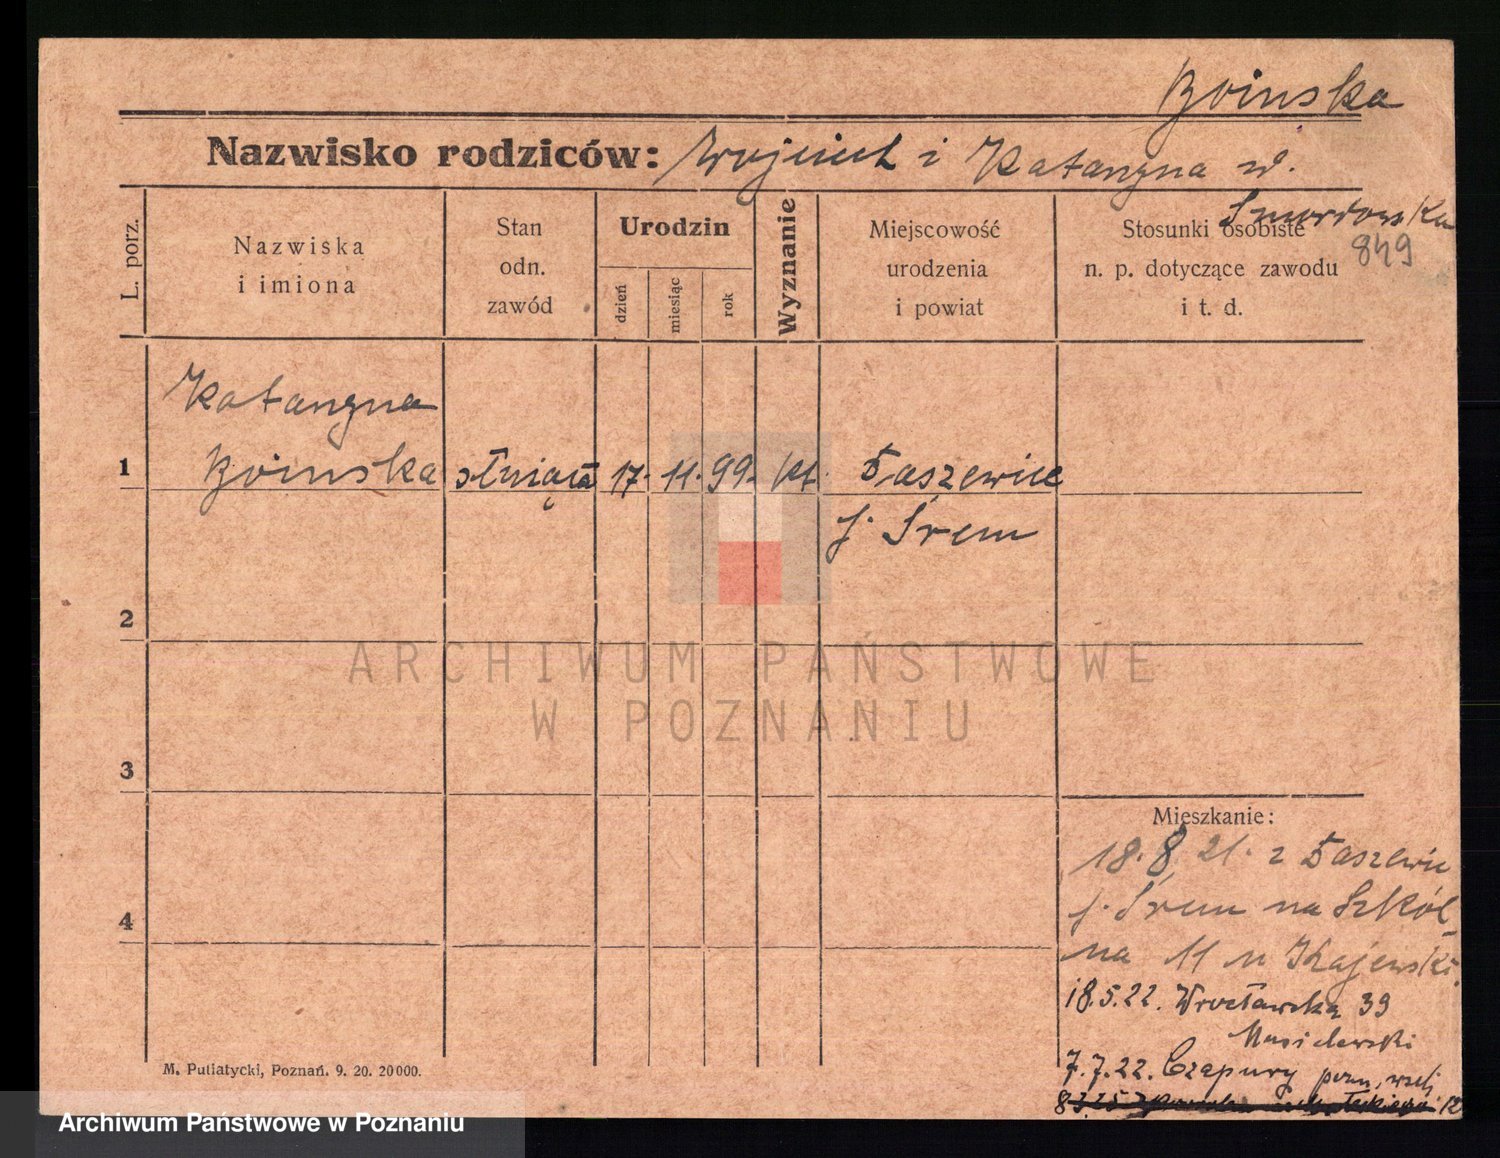 Boinska
Nazwisko rodziców: Wojciech i Katarzyna ur.
849
L. porz.
Nazwiska
i imiona
Stan
odn.
zawód
Urodzin
dzień
miesiąc
rok
Wyznanie
Miejscowość
urodzenia
i powiat
Stosunki osobiste
n. p. dotyczące zawodu
i t. d.
Katarzyna
1 Boinska służąca 17. 11. 99. kt. Łaszewice
p. Śrem
2
3
4
Mieszkanie:
18.8.21. z Łaszewic
p. Śrem na Szkól
na 11 u Krajewski
18.5.22. Wrocławska 39
7.7.22. Czapury
12
M. Putiatycki, Poznań. 9. 20. 20000.
ARCHIWUM PAŃSTWOWE
W POZNANIU
Archiwum Państwowe w Poznaniu